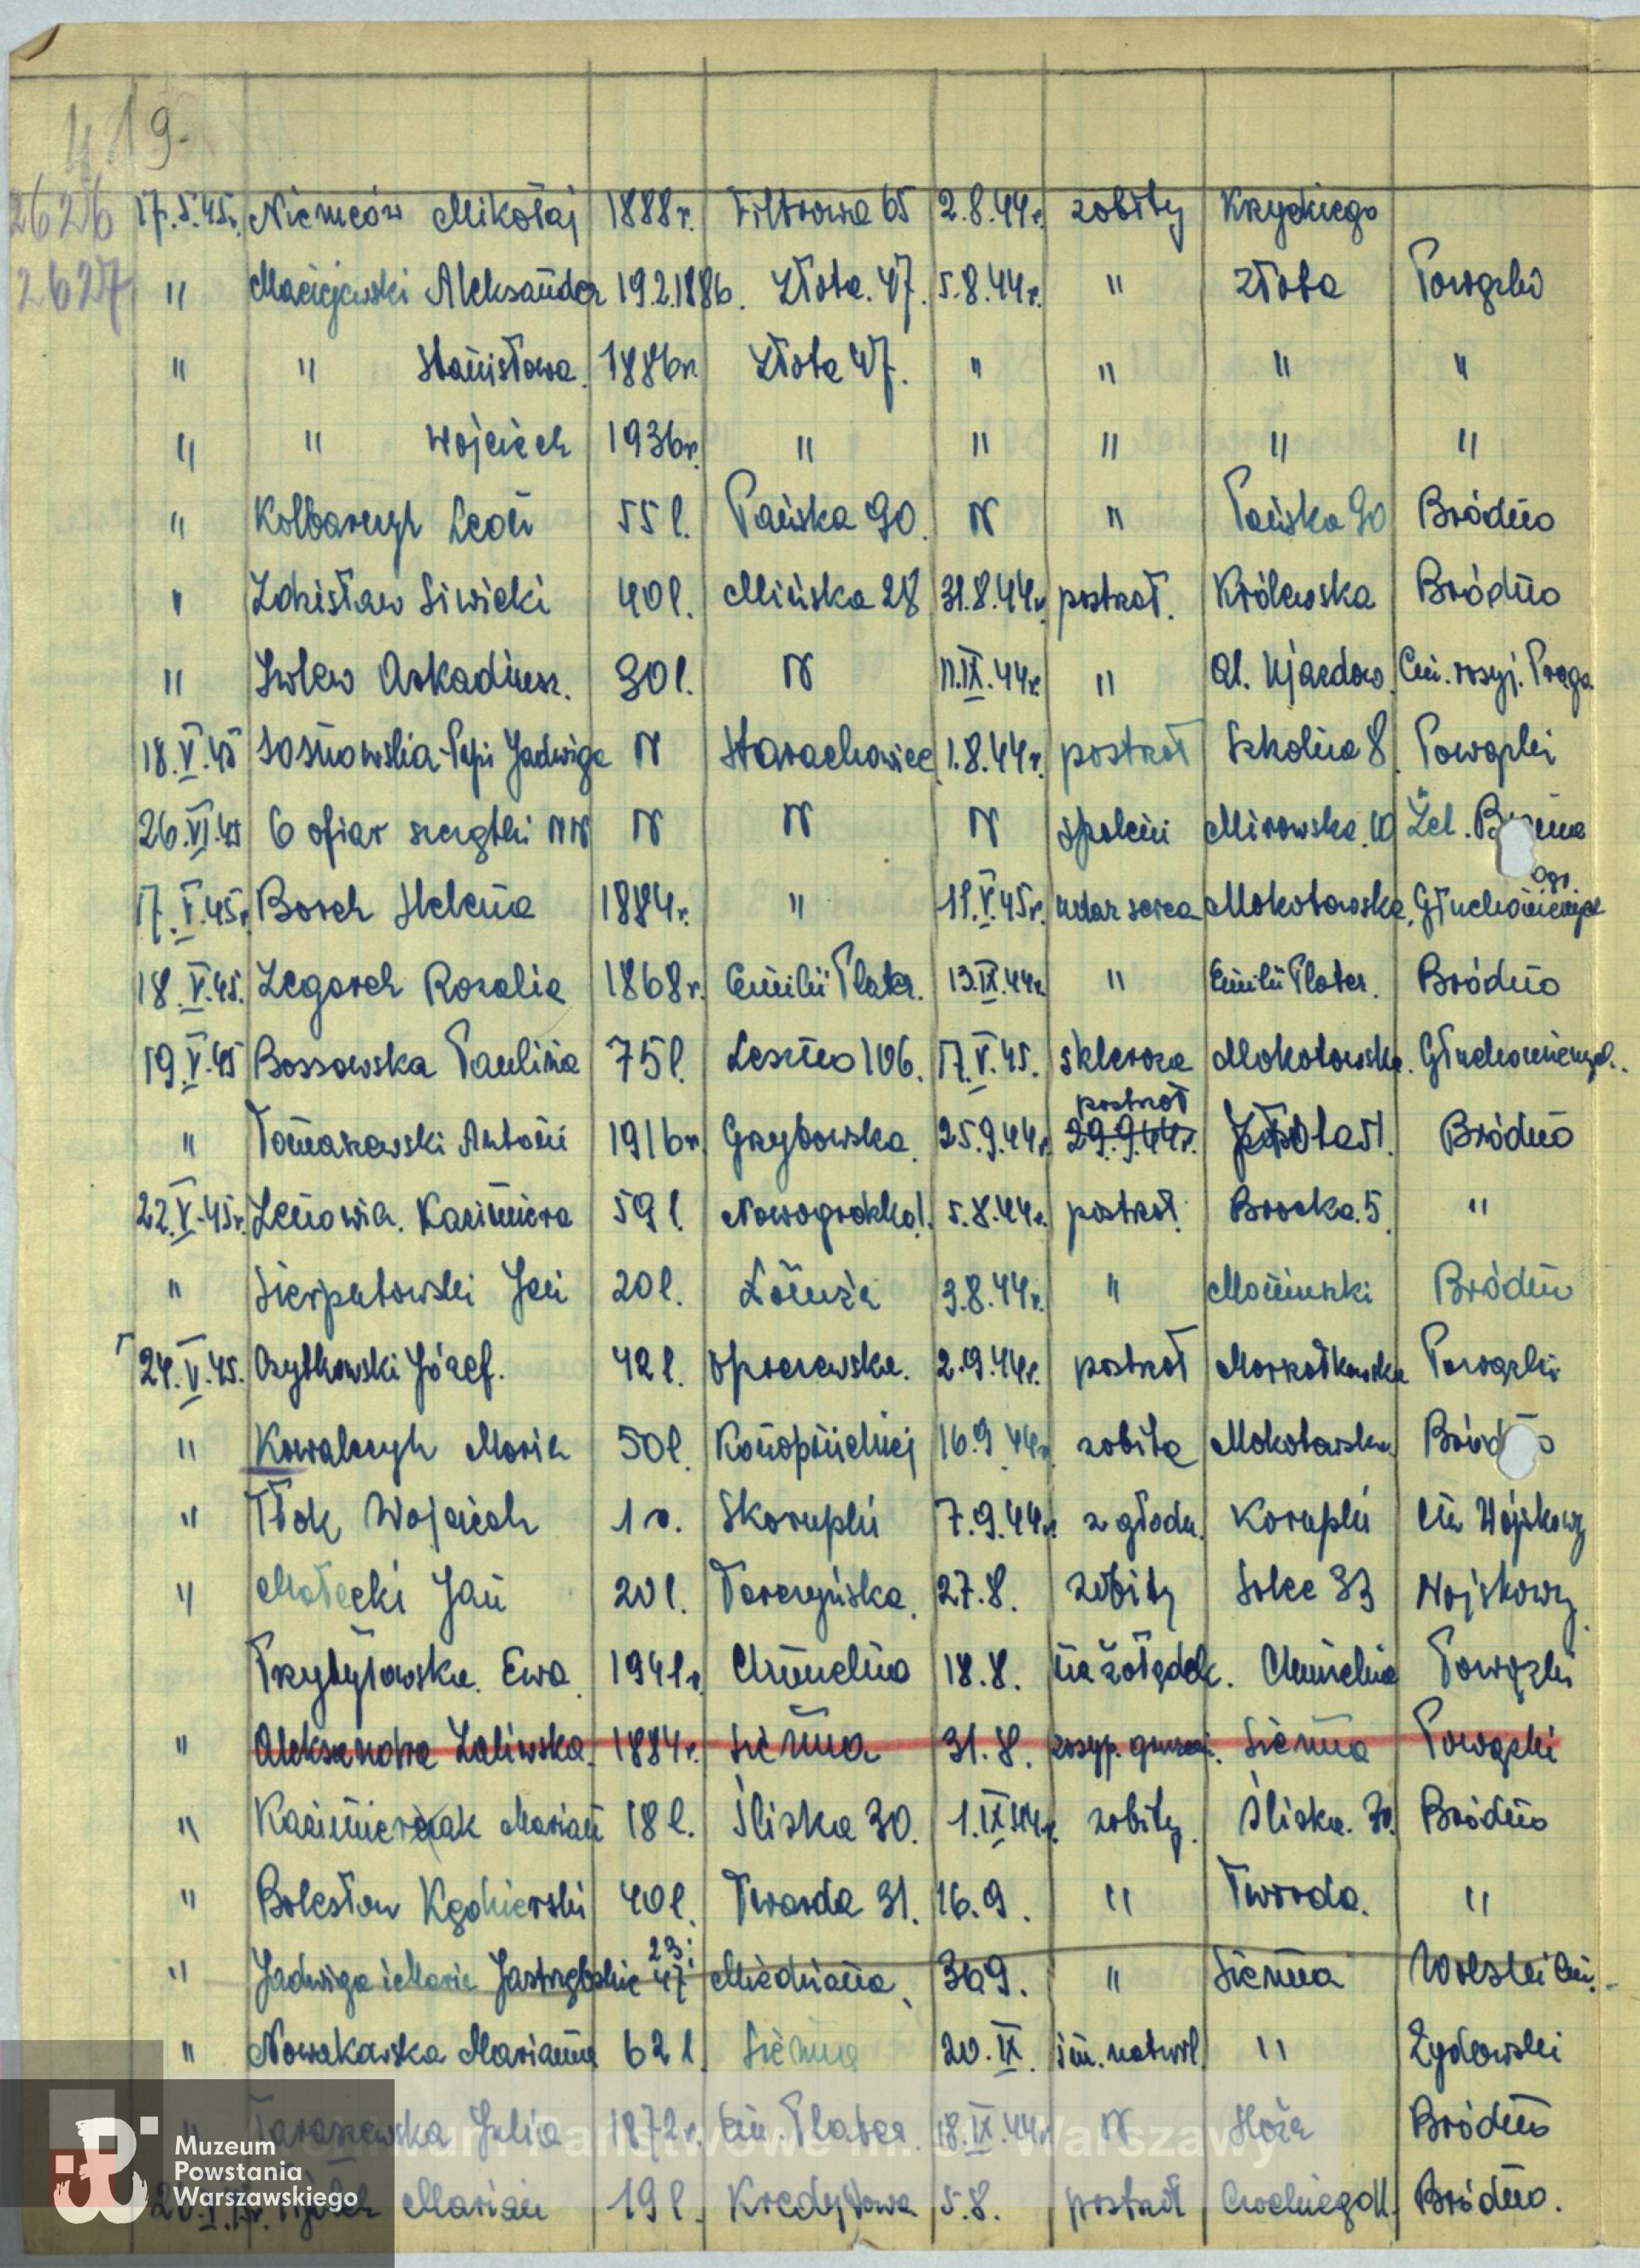 419
2626 17.5.45r. Niemców Mikołaj 1888r. Filtrowa 65 2.8.44r. zabity Krzyckiego
2627 " Maciejewski Aleksander 19.2.1886. Złota. 47. 5.8.44r. " Złota Powązki
" " Stanisława. 1886r. Złota 47. " " " "
" " Wojciech 1936r. " " " " "
" Leon 55 l. Pańska 90. N " Pańska 90 Bródno
" Zdzisław Siwicki 40 l. Mińska 28 31.8.44r. postrzał. Królewska Bródno
" 30 l. N 11.IX.44r. " Al. Ujazdow. Cm. rosyj. Praga
18.V.45 Jadwiga N Starachowice 1.8.44r. postrzał Szkolna 8. Powązki
26.VI.45 6 ofiar szczątki NN N N N spaleni Mirowska 10 Żel.
17.V.45r. Borch Helena 1884r. " 11.V.45r. udar serca Mokotowska. ogr.
18.V.45. Rozalia 1868r. Emilii Plater. 13.IX.44r. " Emilii Plater. Bródno
19.V.45 Bossowska Paulina 75 l. Leszno 106. 17.V.45. skleroza Mokotowska.
" Tomaszewski Antoni 1916r. Grzybowska. 25.9.44r. postrzał 29.9.44r. Bródno
22.V.45r. Kazimiera 59 l. 5.8.44r. postrzał. Bracka. 5. "
" Jan 20 l. Łomża 3.8.44r. " Moniuszki Bródno
24.V.45. Józef. 42 l. Opaczewska. 2.9.44r. postrzał Marszałkowska Powązki
" Kowalczyk Maria 50 l. Konopnickiej 16.9.44r. zabita Mokotowska
" Tłok Wojciech 1 r. Skorupki 7.9.44r. z głodu. Korupki Cm Wojskowy
" Małecki Jan 20 l. Tarczyńska. 27.8. zabity Solec 33 Wojskowy
Ewa. 1941r. Chmielna 18.8. na żołądek. Chmielna Powązki
" Aleksandra Zaliwska. 1884r. Sienna 31.8. zasyp. gruzami. Sienna Powązki
" Kazimierczak Marian 18 l. Śliska 30. 1.IX.44r. zabity. Śliska. 30. Bródno
" Bolesław 40 l. Twarda 31. 16.9. " Twarda. "
" Jadwiga i Maria Jastrzębskie 23: 47 Miedziana. " Sienna Wolski Cm.
" Nowakowska Marianna 62 l. Sienna 20.IX. śm. natural. " Żydowski
" Julia 1872r. Em. Plater. 18.IX.44r. N Hoża Bródno
Marian 19 l. Kredytowa 5.8. postrzał Bródno.
Muzeum
Powstania
Warszawskiego